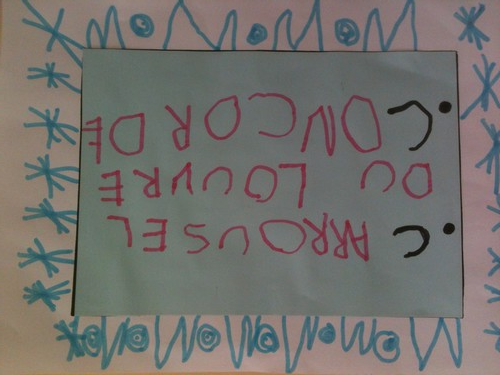 • CARROUSEL
DU LOUVRE
• CONCORDE